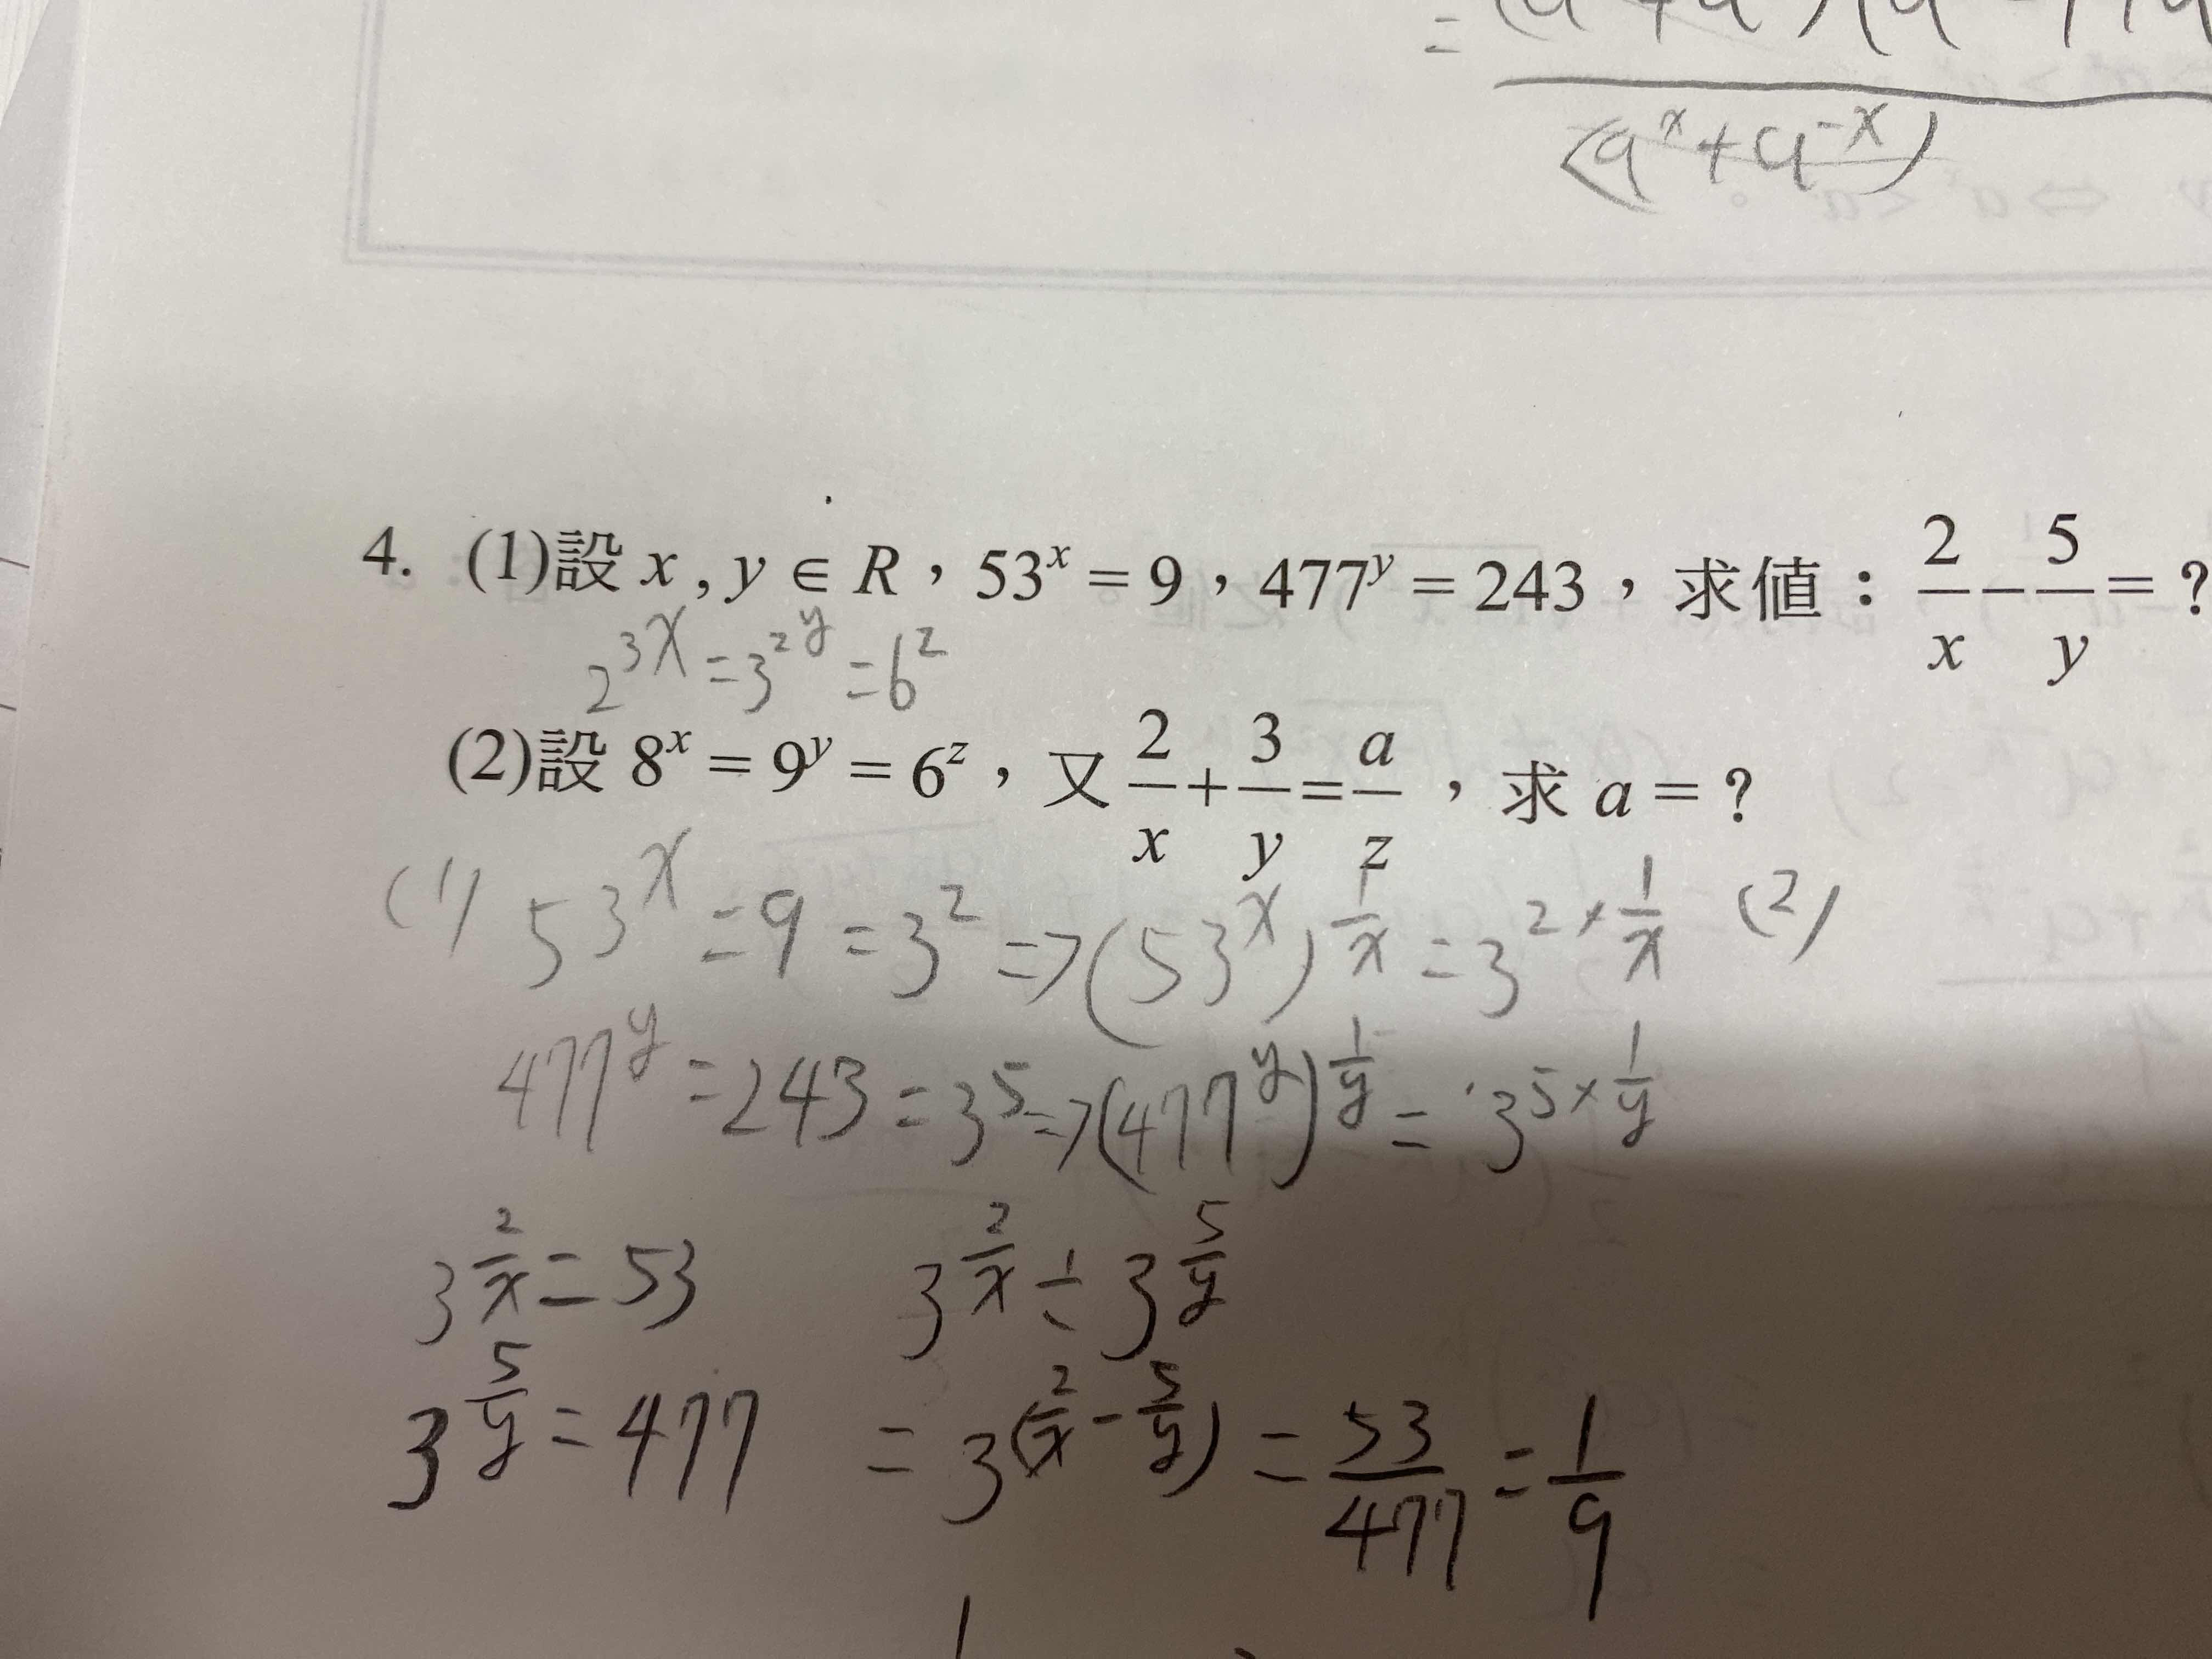 =
(a^x+a^{-x})
4. (1)設 x , y ∈ R,53^x = 9,477^y = 243,求值:\frac{2}{x}-\frac{5}{y}=?
2^{3x}=3^{2y}=6^z
(2)設 8^x = 9^y = 6^z,又 \frac{2}{x}+\frac{3}{y}=\frac{a}{z},求 a = ?
(1) 53^x =9 =3^2 =>(53^x)^{\frac{1}{x}}=3^{2×\frac{1}{x}} (2)
477^y=243=3^5=>(477^y)^{\frac{1}{y}}=3^{5×\frac{1}{y}}
3^{\frac{2}{x}}=53 3^{\frac{2}{x}}÷3^{\frac{5}{y}}
3^{\frac{5}{y}}=477 =3^{(\frac{2}{x}-\frac{5}{y})}=\frac{53}{477}=\frac{1}{9}